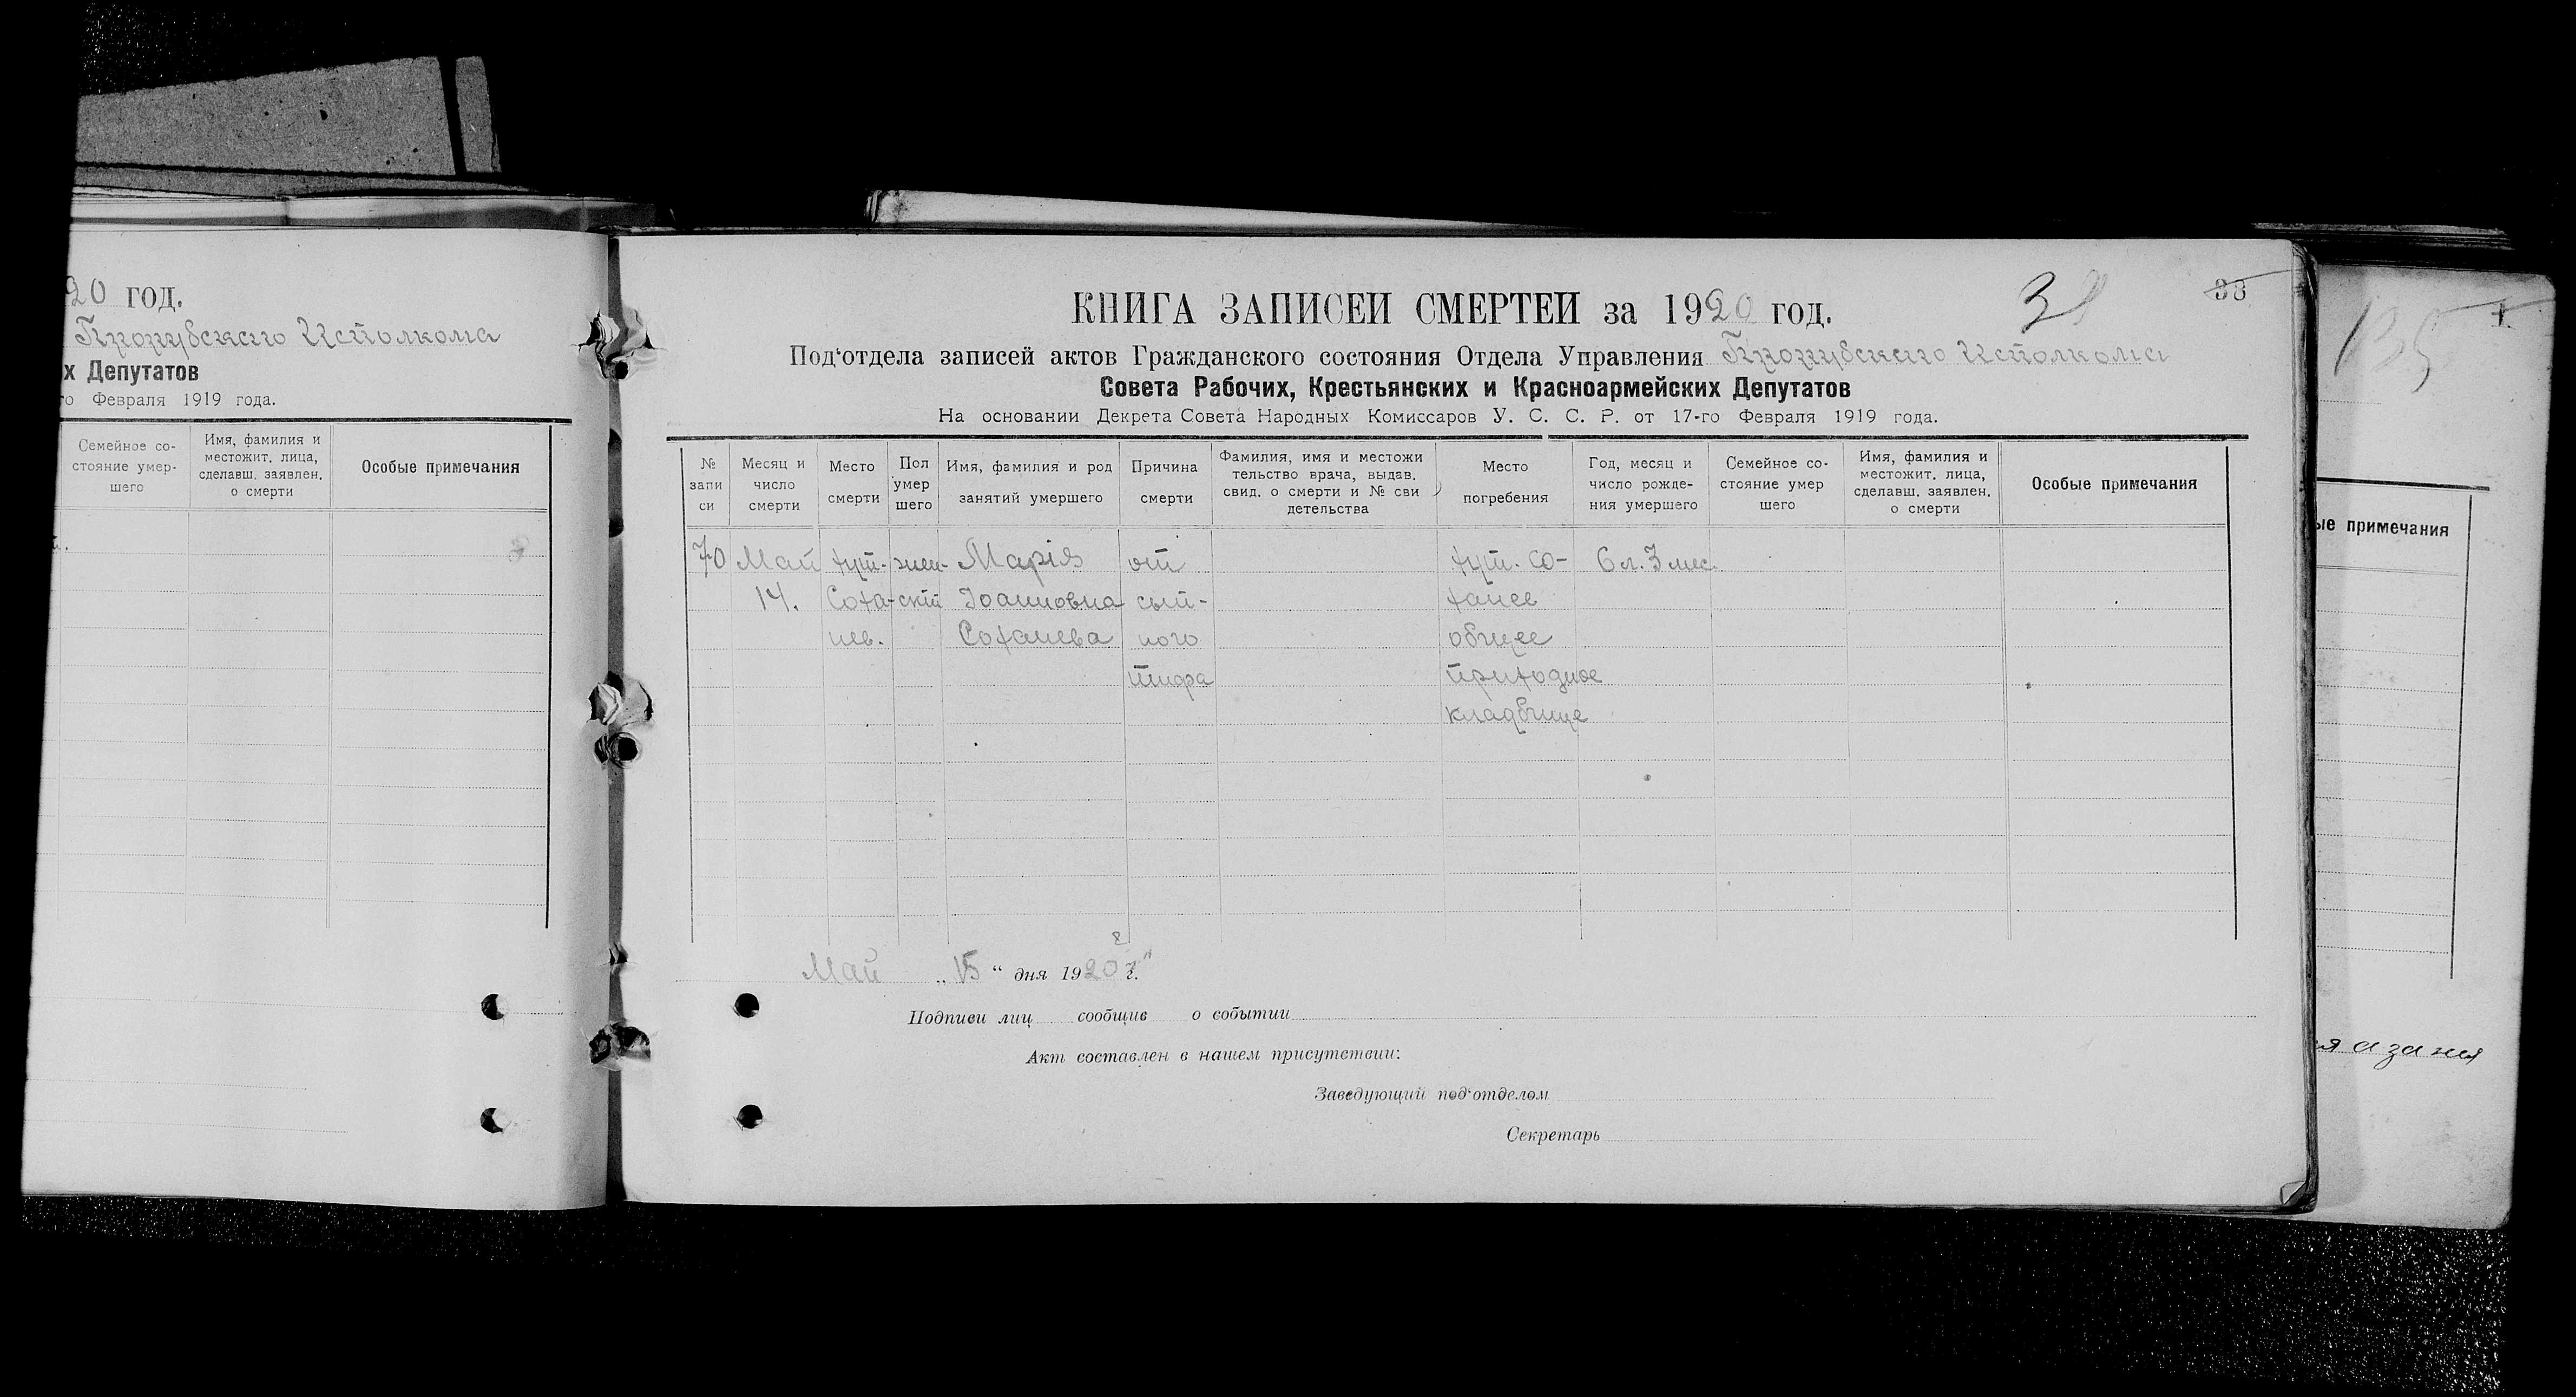 20 год.
Исполкома
х Депутатов
го Февраля 1919 года.
Семейное со-
стояние умер-
шего
Имя, фамилия и
местожит. лица,
сделавш. заявлен.
о смерти
Особые примечания
38
КНИГА ЗАПИСЕЙ СМЕРТЕЙ за 1920 год.
Под‘отдела записей актов Гражданского состояния Отдела Управления Исполкома
Совета Рабочих, Крестьянских и Красноармейских Депутатов
На основании Декрета Совета Народных Комиссаров У. С. С. Р. от 17-го Февраля 1919 года.
№
запи
си
Месяц и
число
смерти
Место
смерти
Пол
умер
шего
Имя, фамилия и род
занятий умершего
Причина
смерти
Фамилия, имя и местожи
тельство врача, выдав.
свид. о смерти и № сви
детельства
Место
погребения
Год, месяц и
число рожде-
ния умершего
Семейное со-
стояние умер
шего
Имя, фамилия и
местожит. лица,
сделавш. заявлен.
о смерти
Особые примечания
70
Май
14.
хут.
Соха-
нев.
жен-
скій
Марія
Іоанновна
Соханева
от
сып-
ного
тифа
хут. Со-
ханев
общее
приходное
кладбище
6 л. 3 мес.
Май „ 15 “ дня 1920 г.
Подписи лиц сообщив о событии
Акт составлен в нашем присутствии:
Заведующий под‘отделом
Секретарь
135
1.
ые примечания